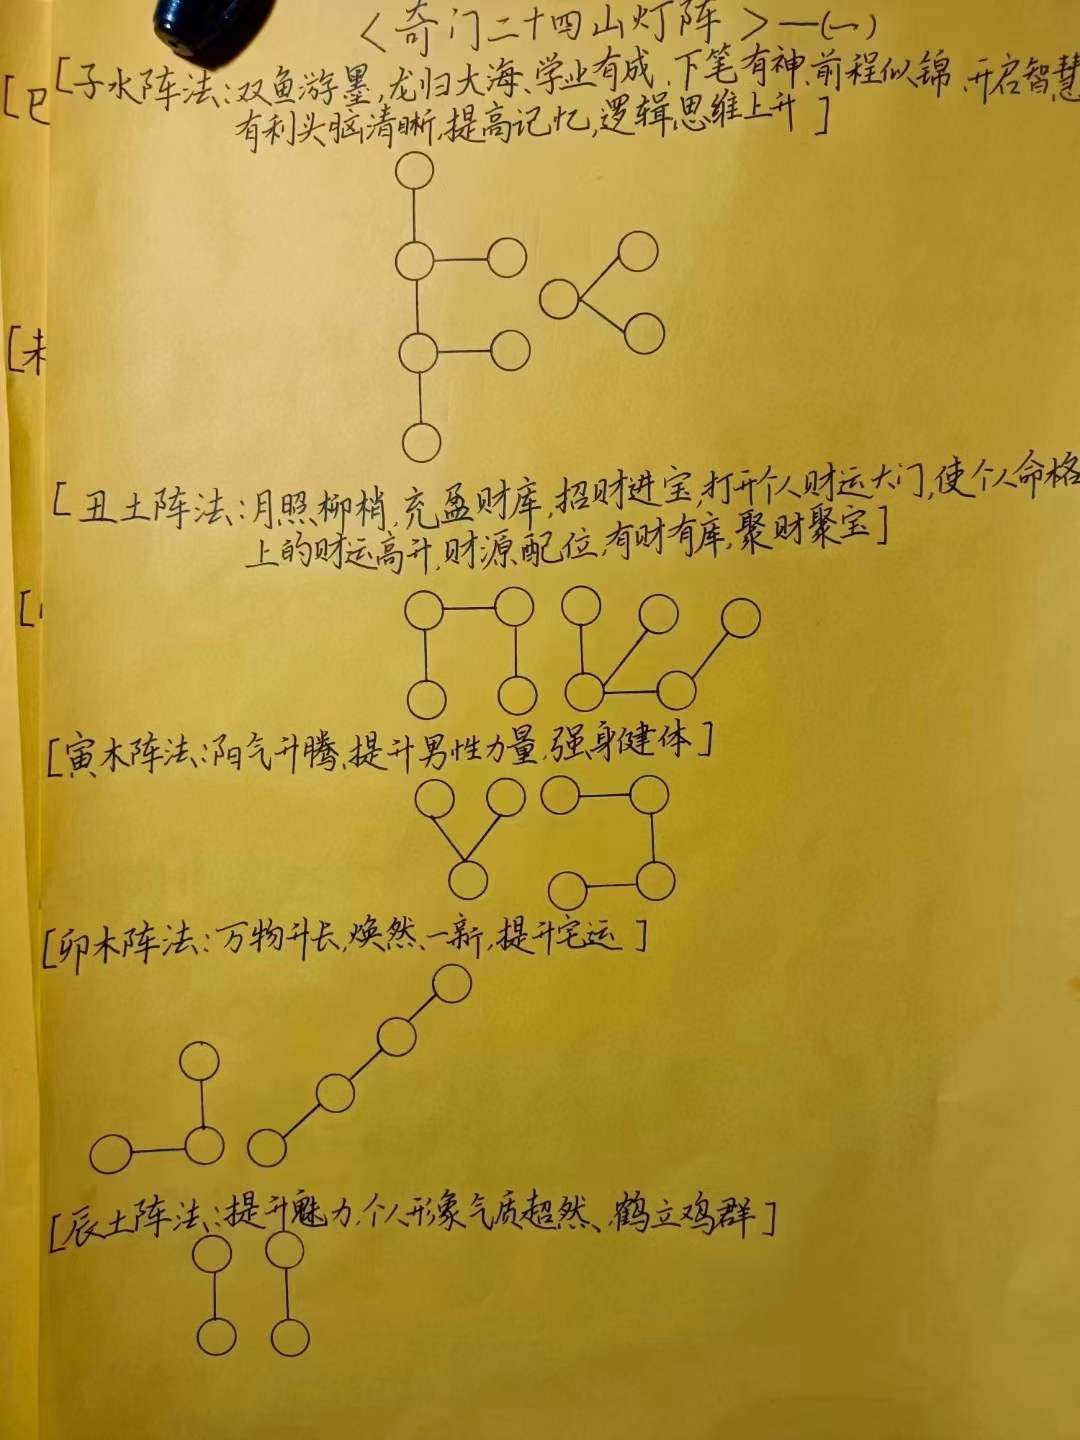 <奇门二十四山灯阵>一(一)
[子水阵法:双鱼游墨,龙归大海、学业有成、下笔有神、前程似锦、开启智慧
有利头脑清晰,提高记忆,逻辑思维上升]
[丑土阵法:月照柳梢,充盈财库,招财进宝,打开个人财运大门,使个人命格
上的财运高升,财源配位,有财有库,聚财聚宝]
[寅木阵法:阳气升腾、提升男性力量,强身健体]
[卯木阵法:万物升长,焕然一新,提升宅运]
[辰土阵法:提升魅力,个人形象气质超然、鹤立鸡群]
[巳
[未